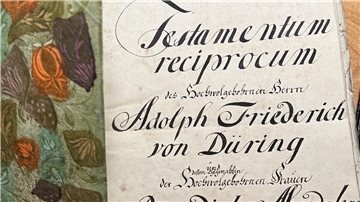 Testamentum
reciprocum
des Hochwolgebohrnen Herrn
Adolph Friederich
von Düring
der Hochwolgebohrnen Frauen